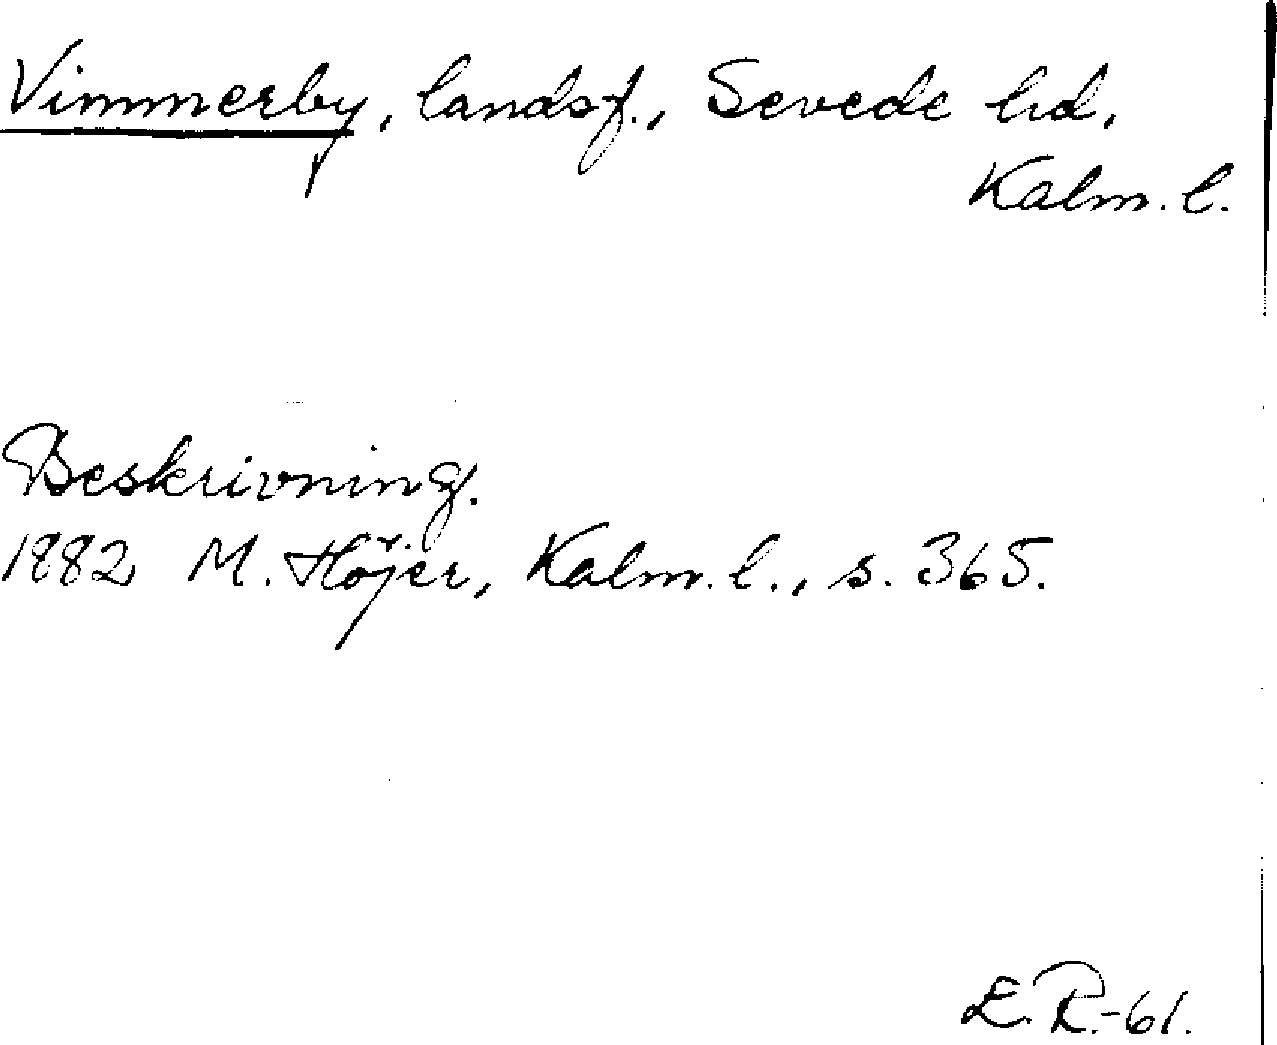 Vimmerby, landsf., Sevede hd,
Kalm. l.
Beskrivning.
1882 M. Höjer, Kalm. l., s. 365.
E. R.-61.